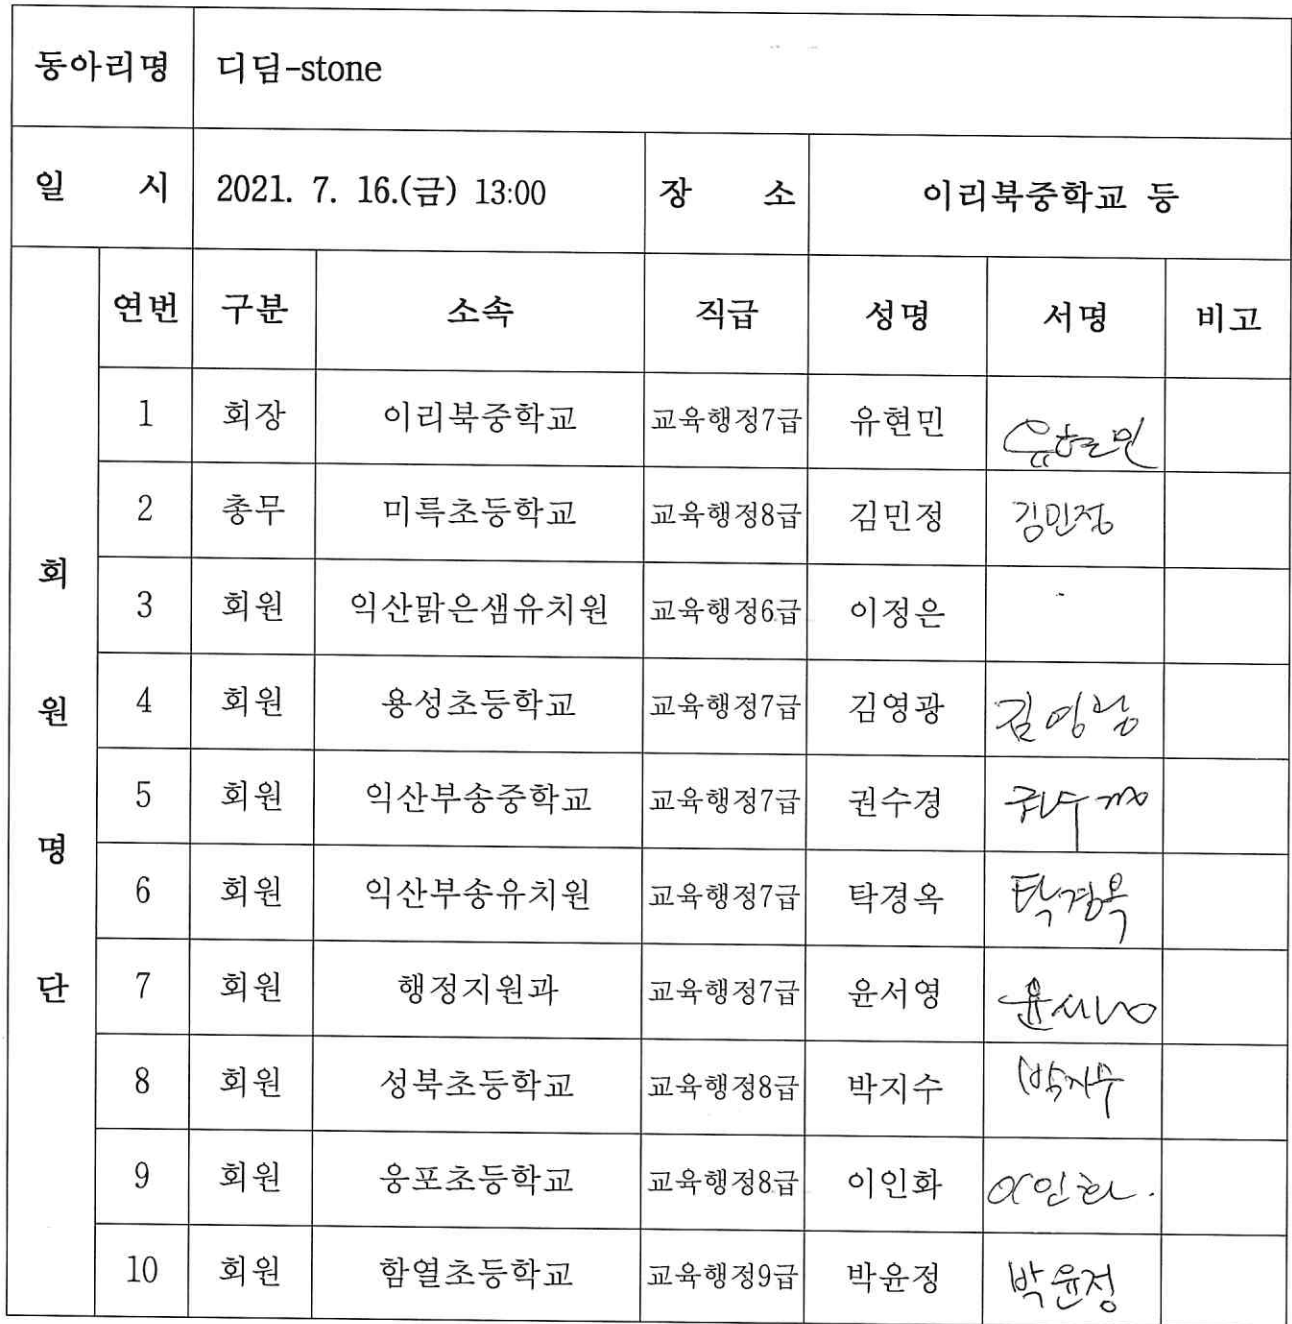 동아리명 디딤-stone
일 시 2021. 7. 16.(금) 13:00 장 소 이리북중학교 등
회원명단
연번 구분 소속 직급 성명 서명 비고
1 회장 이리북중학교 교육행정7급 유현민 유현민
2 총무 미륵초등학교 교육행정8급 김민정 김민정
3 회원 익산맑은샘유치원 교육행정6급 이정은
4 회원 용성초등학교 교육행정7급 김영광 김영광
5 회원 익산부송중학교 교육행정7급 권수경 권수경
6 회원 익산부송유치원 교육행정7급 탁경옥 탁경옥
7 회원 행정지원과 교육행정7급 윤서영 윤서영
8 회원 성북초등학교 교육행정8급 박지수 박지수
9 회원 웅포초등학교 교육행정8급 이인화 이인화.
10 회원 함열초등학교 교육행정9급 박윤정 박윤정